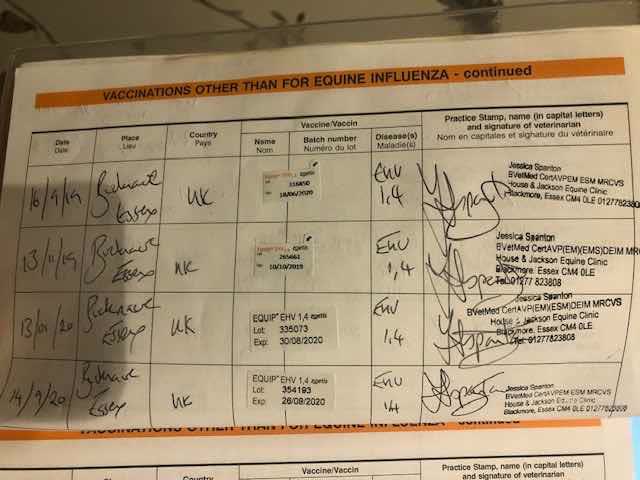 VACCINATIONS OTHER THAN FOR EQUINE INFLUENZA - continued
Date
Date
Place
Lieu
Country
Pays
Vaccine/Vaccin
Name
Nom
Batch number
Numéro du lot
Disease(s)
Maladie(s)
Practice Stamp, name (in capital letters)
and signature of veterinarian
Nom en capitales et signature du vétérinaire
16/9/19
Essex
UK
zoetis
316850
18/06/2020
EHV
1,4
Jessica Spanton
BVetMed CertAVPEM ESM MRCVS
House & Jackson Equine Clinic
Blackmore, Essex CM4 0LE 01277823808
13/11/19
Essex
UK
zoetis
265661
10/10/2019
EHV
1,4
Jessica Spanton
BVetMed CertAVP(EM)(EMS)DEIM MRCVS
House & Jackson Equine Clinic
Blackmore, Essex CM4 0LE
Tel: 01277 823808
13/01/20
Essex
UK
EQUIP EHV 1,4 zoetis
Lot: 335073
Exp: 30/08/2020
EHV
1,4
Jessica Spanton
BVetMed CertAVP(EM)(ESM)DEIM MRCVS
House & Jackson Equine Clinic
Blackmore, Essex CM4 0LE.
Tel: 01277823808
14/9/20
Essex
UK
EQUIP EHV 1,4 zoetis
Lot: 354193
Exp: 26/08/2020
EHV
1,4
Jessica Spanton
BVetMed CertAVPEM ESM MRCVS
House & Jackson Equine Clinic
Blackmore, Essex CM4 0LE
VACCINATIONS OTHER THAN FOR EQUINE INFLUENZA - continued
Place
Country
Vaccine/Vaccin
Practice Stamp, name (in capital letters)
and signature of veterinarian
Batch number
Disease(s)